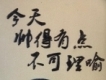 今天
帅得有点
不可理喻